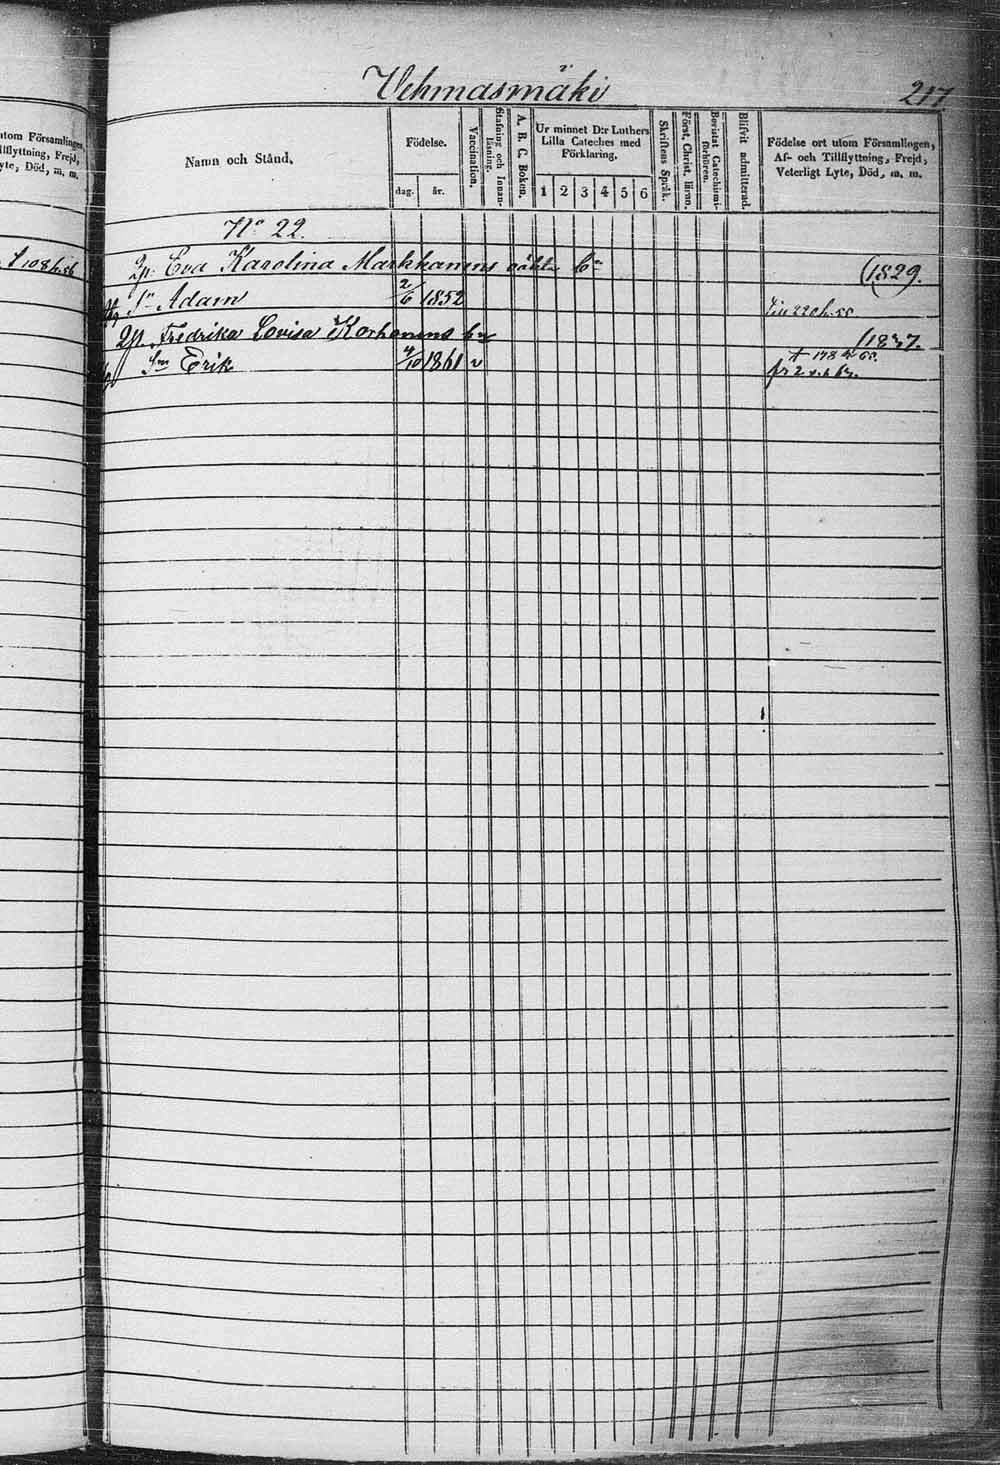 Vehmasmäki 217
utom Församlingen,
Tillflyttning, Frejd,
Lyte, Död, m. m.
Namn och Stånd.
Födelse.
dag. år.
Vaccination.
Stafning och Innanläsning.
A. B. C. Boken.
Ur minnet D:r Luthers
Lilla Cateches med
Förklaring.
1 2 3 4 5 6
Skriftens Språk.
Först. Christ. läran.
Bevistat Catechismiförhören.
Blifvit admitterad.
Födelse ort utom Församlingen,
Af- och Tillflyttning, Frejd,
Veterligt Lyte, Död, m. m.
No 22.
Qp. Eva Karolina Markkanens oäkta (1829.
Sn Adam 2/6 1852
Qp. Fredrika Lovisa Korhonens (1837.
Son Erik 4/10 1861 v